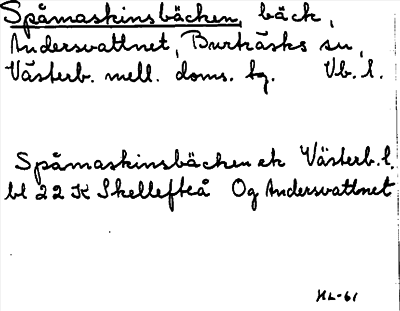 Spåmaskinsbäcken, bäck,
Andersvattnet, Burträsks sn,
Västerb. mell. doms. tg. Vb. l.
Spåmaskinsbäcken ek Västerb. l.
bl 22 K Skellefteå Og Andersvattnet
HL-61